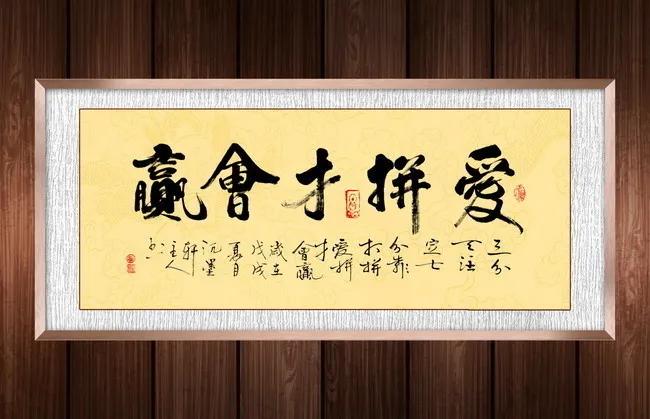 愛拼才會贏
三分
天註
定七
分靠
打拼
愛拼
才
會贏
歲在
戊戌
夏月
墨
軒
主人